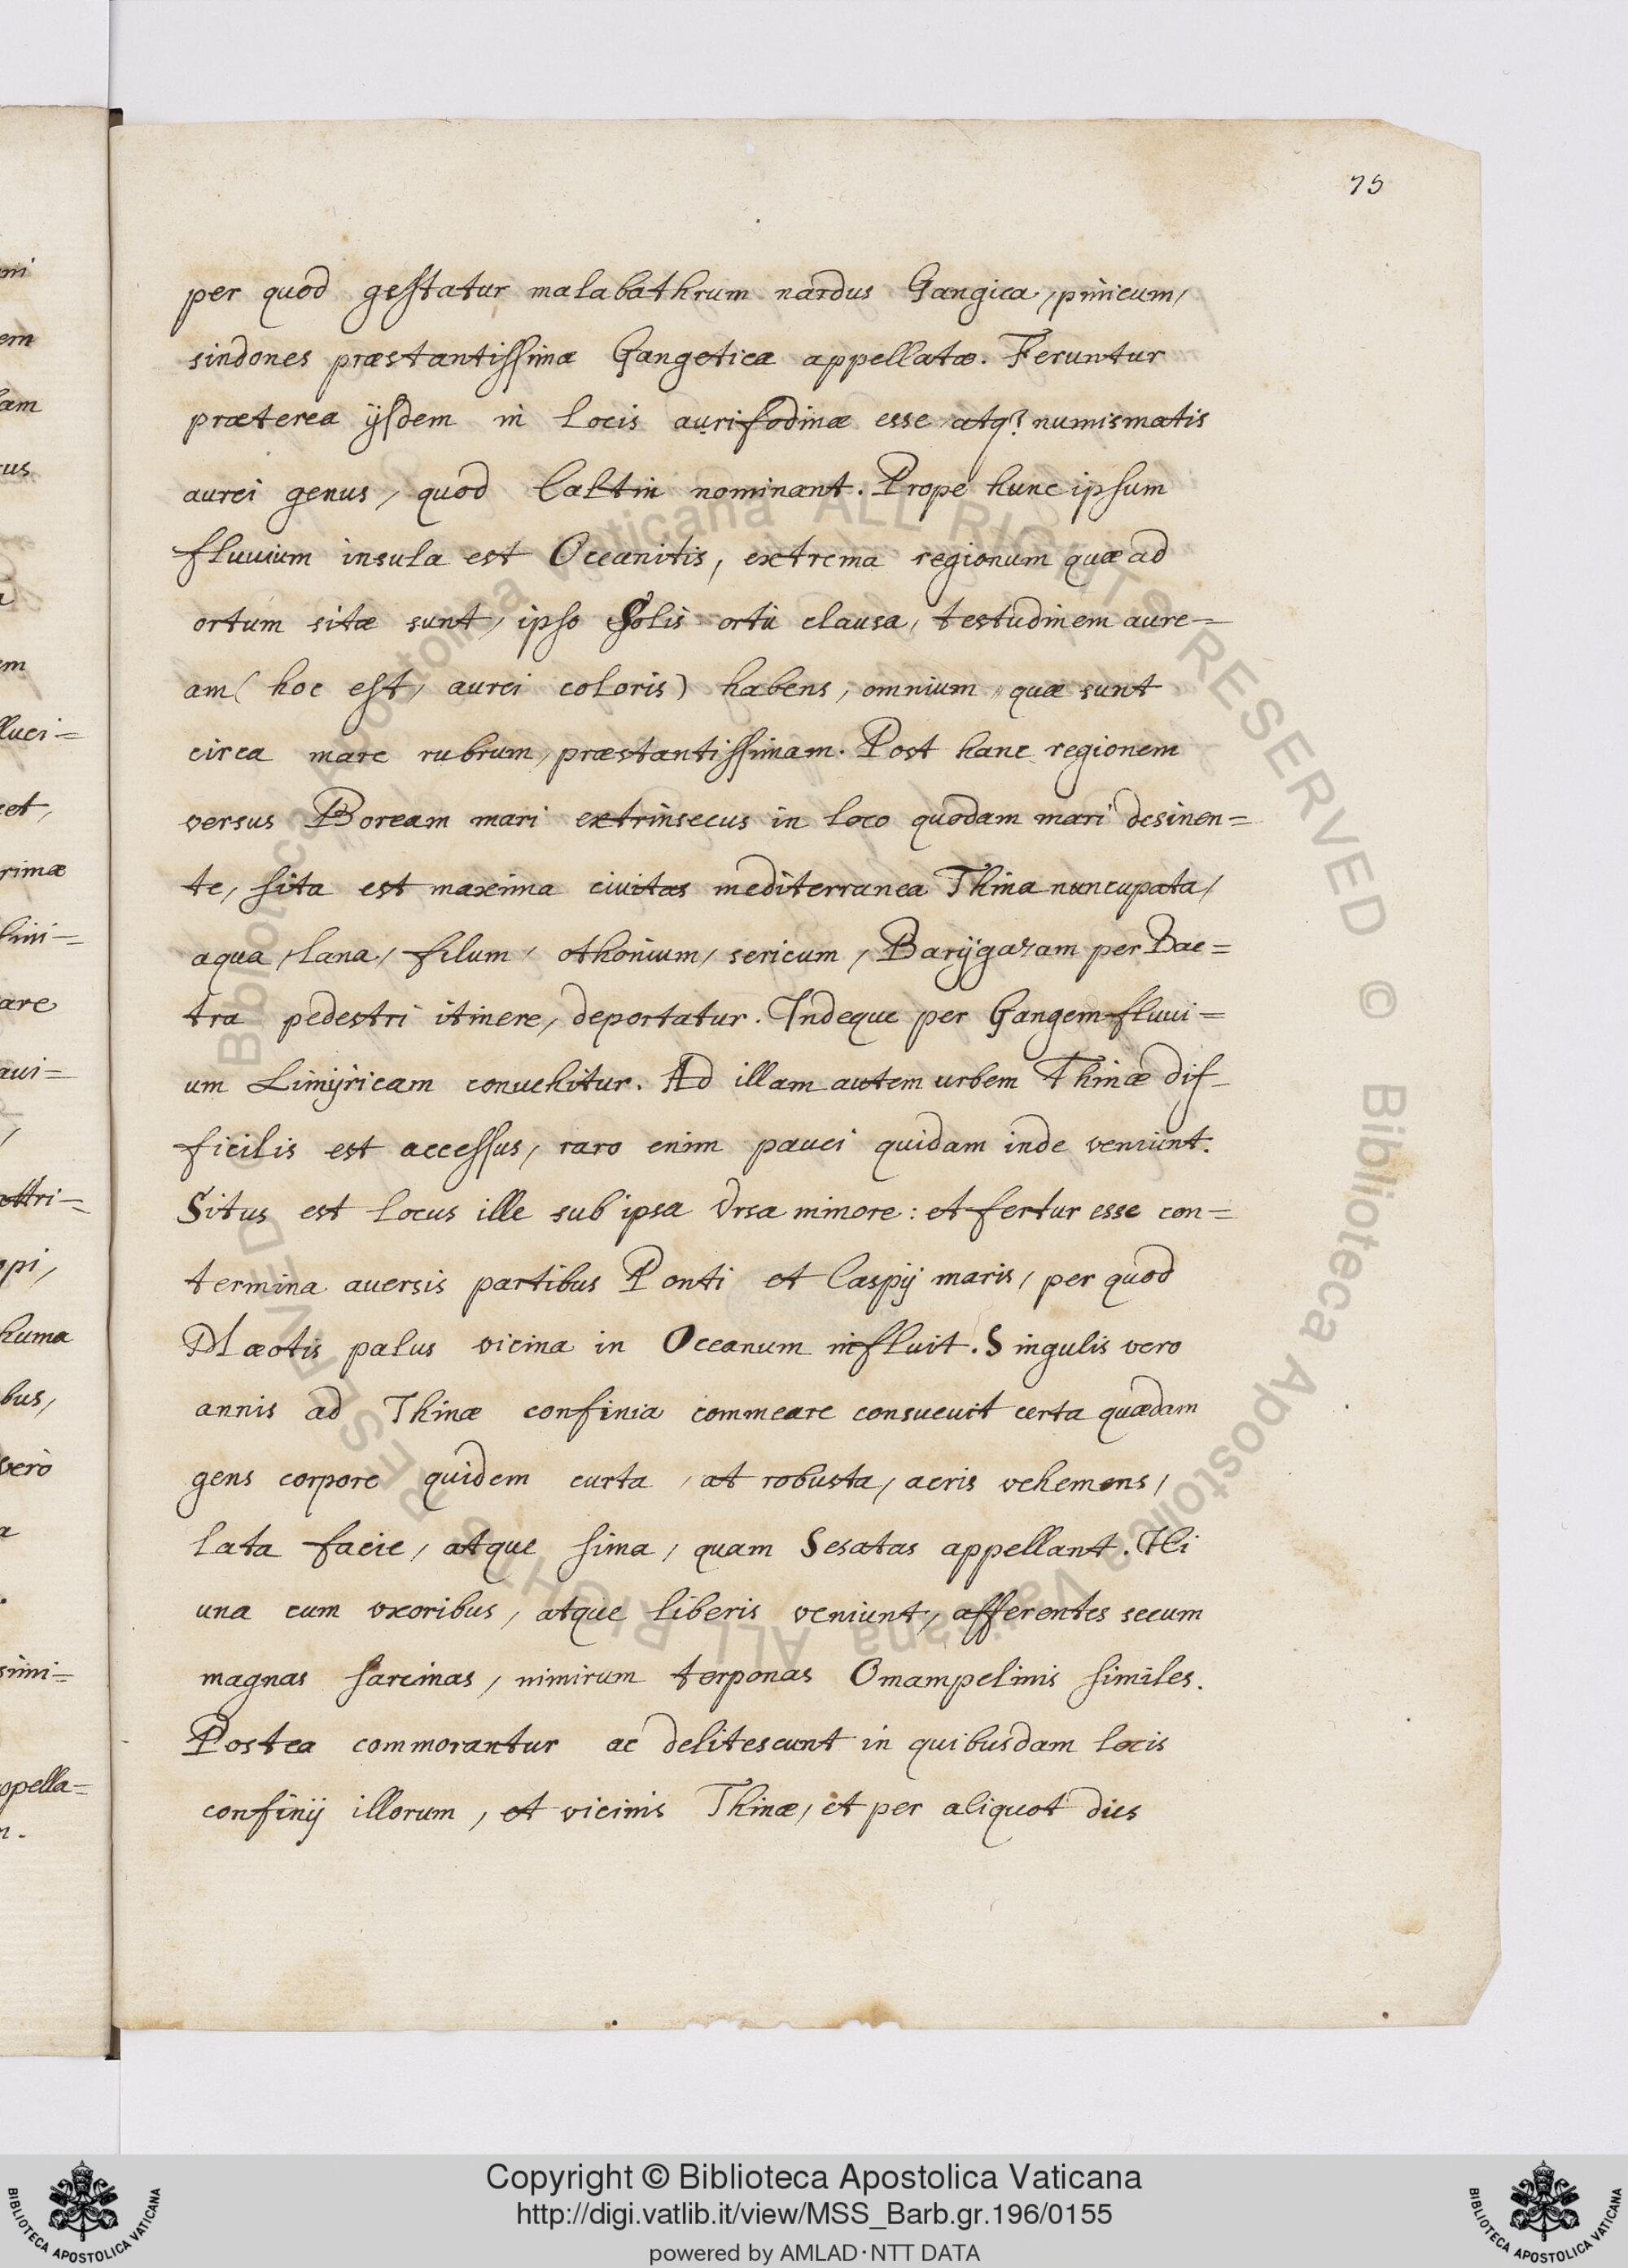 75
per quod gestatur malabathrum nardus Gangica, pinicum,
sindones præstantissimæ Gangeticæ appellatæ. Feruntur
præterea ijsdem in locis aurifodinæ esse atq3 numismatis
aurei genus, quod Caltin nominant. Prope hunc ipsum
fluuium insula est Oceanitis, extrema regionum quæ ad
ortum sitæ sunt, ipso Solis ortu clausa, testudinem aure=
am (hoc est, aurei coloris) habens, omnium, quæ sunt
circa mare rubrum, præstantissimam. Post hanc regionem
versus Boream mari extrinsecus in loco quodam mari desinen=
te, sita est maxima ciuitas mediterranea Thina nuncupata,
a qua, lana, filum, othonium, sericum, Barÿgazam per Bac=
tra pedestri itinere, deportatur. Indeque per Gangem fluui=
um Limÿricam conuehitur. Ad illam autem urbem Thinæ dif-
ficilis est accessus, raro enim pauci quidam inde veniunt.
Situs est locus ille sub ipsa Vrsa minore: et fertur esse con=
termina auersis partibus Ponti et Caspij maris, per quod
Mæotis palus vicina in Oceanum influit. Singulis vero
annis ad Thinæ confinia commeare consueuit certa quædam
gens corpore quidem curta, at robusta, acris vehemens,
lata facie, atque sima, quam Sesatas appellant. Hi
una cum vxoribus, atque liberis veniunt, afferentes secum
magnas sarcinas, nimirum terponas Omampelinis similes.
Postea commorantur ac delitescunt in quibusdam locis
confinij illorum, et vicinis Thinæ, et per aliquot dies
mi
em
am
us
em
luci=
et,
rimæ
are
aui=
ottri=
pi,
huma
bus,
verò
simi=
appella=
Biblioteca Apostolica Vaticana ALL RIGHTS RESERVED © Biblioteca Apostolica Vaticana ALL RIGHTS RESERVED
Copyright © Biblioteca Apostolica Vaticana
http://digi.vatlib.it/view/MSS_Barb.gr.196/0155
powered by AMLAD·NTT DATA
BIBLIOTECA APOSTOLICA VATICANA
BIBLIOTECA APOSTOLICA VATICANA